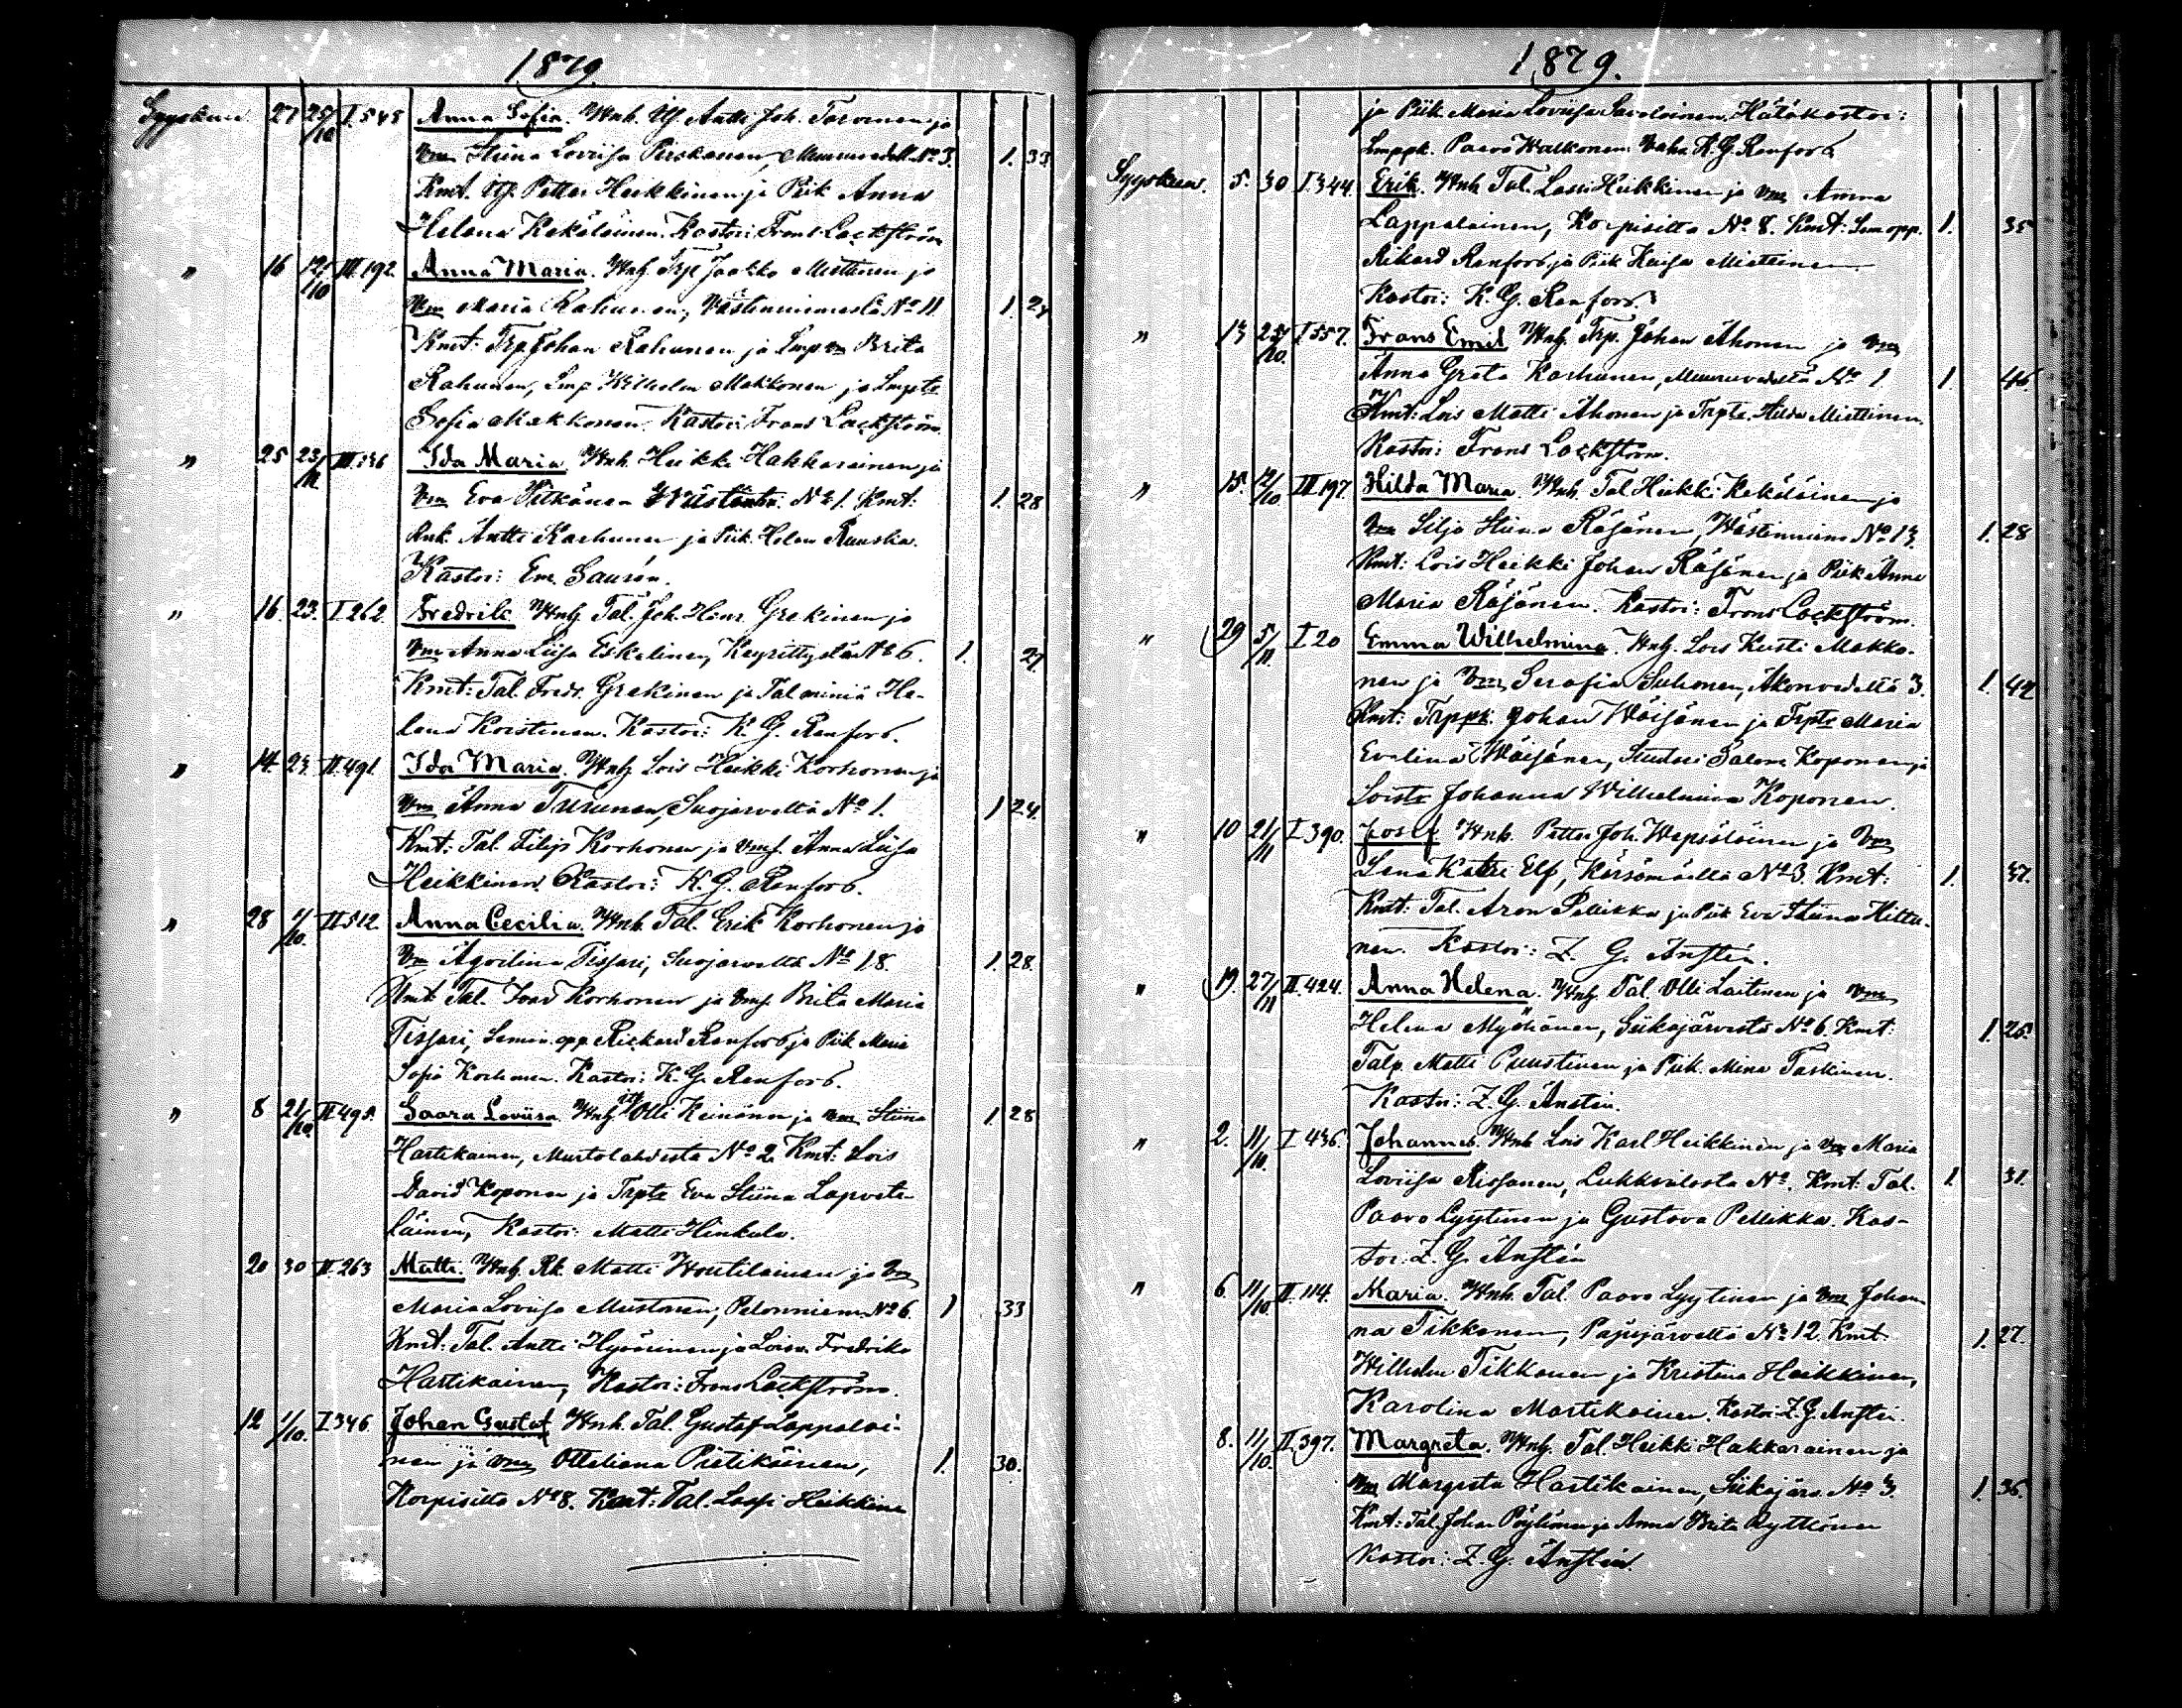 1879.
Syyskuu 27 25/10 I.545 Anna Sofia. Wnh. Itf. Antti Joh. Torvinen ja
Vm Stiina Loviisa Pirskanen, Muuruvedeltä No 3. 1. 33
Kmt. Itf. Petter Heikkinen ja Piik Anna
Helena Kekäläinen. Kastoi: Frans Lackström
" 16 12/10 III.192. Anna Maria. Wnh. Trp Jaakko Miettinen ja
Vm Maria Rahunen, Västinniemestä No 11. 1. 24
Kmt: Trp Johan Rahunen ja Lmp vm Brita
Rahunen, Lmp Wilhelm Makkonen ja Lmpts
Sofia Makkonen. Kastoi: Frans Lackström.
" 25 23/11 III.136 Ida Maria. Wnh. Heikki Hakkarainen ja
Vm Eva Pitkänen No 1. Kmt: 1. 28
Rnk Antti Karhunen ja Piik. Helena Ruuska.
Kastoi: Em. Saurén.
" 16. 23. I.262 Fredrik Wnh. Tal. Joh. Henr. Grekinen ja
Vm Anna Liisa Eskelinen, Keyrittystä No 6. 1. 27.
Kmt: Tal. Fredr. Grekinen ja Tal miniä He-
lena Korstinen. Kastoi: K. G. Renfors.
" 14. 23. II.491. Ida Maria. Wnh. Lois Heikki Korhonen ja
Vm Anna Turunen, Suojarveltä No 1. 1 24.
Kmt: Tal. Filip Korhonen ja vmf. Anna Liisa
Heikkinen. Kastoi: K. G. Renfors.
" 28 1/10. II 512. Anna Cecilia. Wnh. Tal. Erik Korhonen ja
Vm Agvelina Tissari, Suojarveltä No 18. 1. 28.
Kmt Tal. Ivar Korhonen ja vmf. Brita Maria
Tissari, Semin. opp. Rickard Renfors ja Piik Maria
Sofia Korhonen. Kastoi: K. G. Renfors.
" 8 21/10 II 495. Saara Loviisa. Wnh. itf Olli Keinänen ja vm Stiina 1. 28
Hartikainen, Murtolahdesta No 2. Kmt: Lois
David Koponen ja Trpts Eva Stiina Lapvete-
läinen, Kastoi: Matti Hinkula.
20 30 II.263 Matti. Wnh. Rk. Matti Woutilainen ja Vm
Maria Loviisa Mustonen, Pelonniem. No 6. 1 33
Kmt: Tal. Antti Hyvärinen ja Loisv. Fredrika
Hartikainen, Kastoi: Frans Lackström.
12 1/10. I 346 Johan Gustaf Wnh. Tal. Gustaf Lappalai-
nen ja vm Ottiliana Pietikäinen, 1. 30.
Korpisilta No 8. Kmt: Tal. Lassi Heikkinen
1879.
ja Piik. Maria Loviisa Savolainen. Hätäkastoi:
Lmppk. Paavo Walkonen. Vahv. K. G. Renfors
Syyskuu. 5. 30 I 344. Erik. Wnh. Tal. Lassi Heikkinen ja vm Anna
Lappalainen, Korpisilta No 8. Kmt: Sem opp. 1. 35
Rikard Renfors ja Piik Kaisa Miettinen
Kastoi: K. G. Renfors.
" 13 25/10. I 557. Frans Emil Wnh. Trp. Johan Ahonen ja vm
Anna Greta Karhunen, Muuruvedeltä No 1 1. 46.
Kmt: Lois Matti Ahonen ja Trpts. Hilda Miettinen.
Kastoi: Frans Lackström.
" 15. 12/10. III 197. Hilda Maria. Wnh. Tal Heikki Kekäläinen ja
Vm Silja Stiina Räsänen, Wästinniem. No 13. 1. 28
Kmt: Lois Heikki Johan Räsänen ja Piik Anna
Maria Räsänen. Kastoi: Frans Lackström.
" 29 5/11. I 20 Emma Wilhelmina. Wnh. Lois Kusti Makko-
nen ja Vm Serafia Suhonen, Akonvedeltä 3. 1. 42
Kmt: Trppk. Johan Wäisänen ja Trpts Maria
Evelina Wäisänen, Salom. Koponen ja
Loists Johanna Wilhelmina Koponen.
" 10 21/11 I 390. Josef Wnh. Petter Joh. Wepsäläinen ja Vm
Lena Katri Elf, Kärsämäeltä No 3. Kmt: 1. 37.
Kmt: Tal. Aron Pellikka ja Piik Eva Stiina Hiltu-
nen. Kastoi: Z. G. Anstén.
" 19. 27/11 II.424. Anna Helena. Wnh. Tal. Olli Laitinen ja Vm
Helena Myöhänen, Siikajärvestä No 6. Kmt: 1. 25.
Talp. Matti Puustinen ja Piik. Mina Taskinen.
Kastoi: Z. G. Anstén.
" 2. 11/10. I 436. Johannes. Wnh. Lois Karl Heikkinen ja vm Maria
Loviisa Rissanen, No. Kmt: Tal. 1. 31.
Paavo Lyytinen ja Gustava Pellikka. Kas-
toi: Z. G. Anstén
" 6 11/10. II.114. Maria. Wnh. Tal. Paavo Lyytinen ja Vm Johan-
na Tikkanen, Pajujärveltä No 12. Kmt: 1. 27.
Wilhelm Tikkanen ja Kristina Heikkinen,
Karolina Martikainen. Kastoi Z. G. Anstén.
8. 11/10. II.397. Margreta. Wnh. Tal. Heikki Hakkarainen ja
Vm Margreta Hartikainen, Siikajärv. No 3. 1. 36.
Kmt: Tal. Johan Pöyhönen ja Anna Brita Rytkönen
Kastoi: Z. G. Anstén.